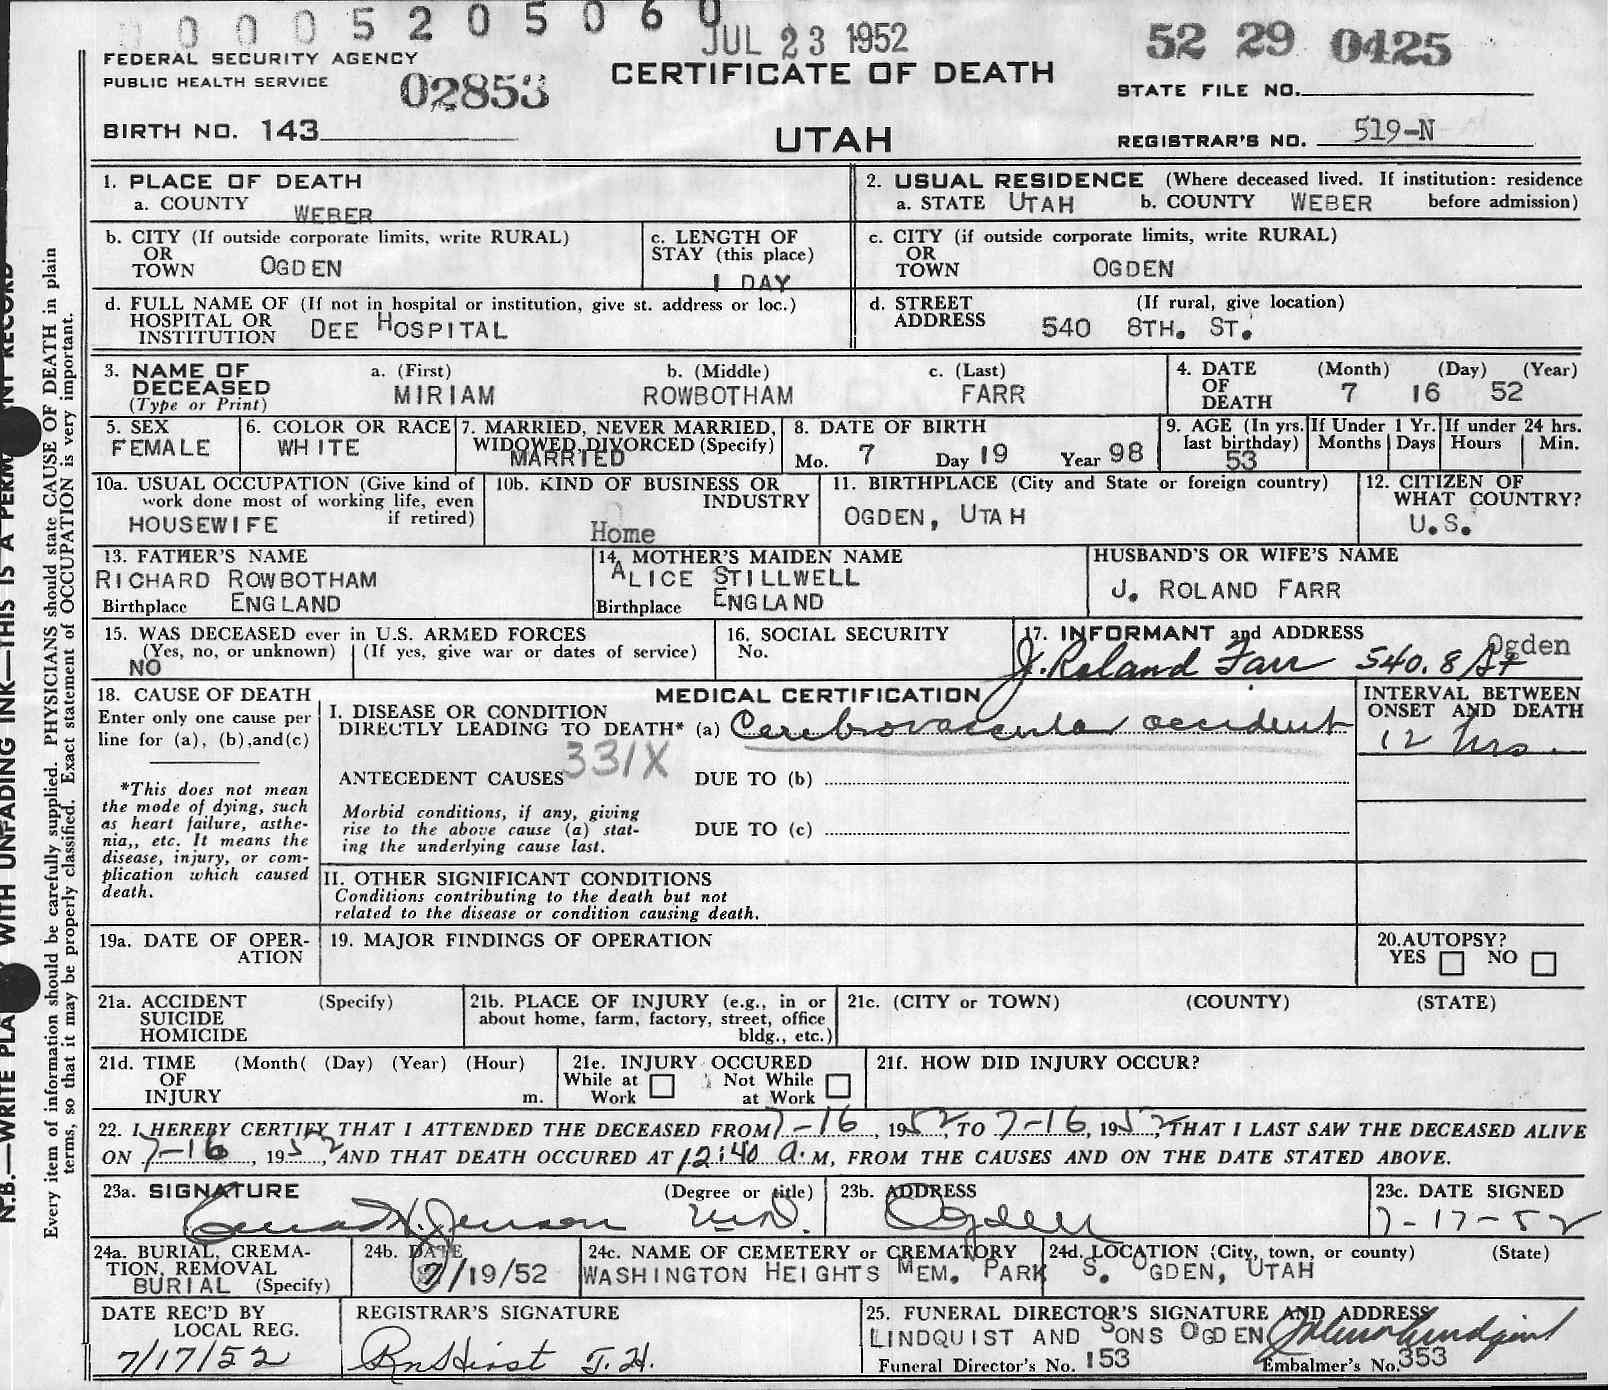 0 0 0 5 2 0 5 0 6 0
JUL 23 1952
52 29 0425
FEDERAL SECURITY AGENCY
PUBLIC HEALTH SERVICE
02853
CERTIFICATE OF DEATH
STATE FILE NO.
BIRTH NO. 143
UTAH
REGISTRAR'S NO. 519-N
1. PLACE OF DEATH
a. COUNTY WEBER
2. USUAL RESIDENCE (Where deceased lived. If institution: residence before admission)
a. STATE UTAH b. COUNTY WEBER
b. CITY (If outside corporate limits, write RURAL)
OR
TOWN OGDEN
c. LENGTH OF
STAY (this place)
1 DAY
c. CITY (if outside corporate limits, write RURAL)
OR
TOWN OGDEN
d. FULL NAME OF (If not in hospital or institution, give st. address or loc.)
HOSPITAL OR
INSTITUTION DEE HOSPITAL
d. STREET (If rural, give location)
ADDRESS 540 8TH. ST.
3. NAME OF
DECEASED
(Type or Print)
a. (First) b. (Middle) c. (Last)
MIRIAM ROWBOTHAM FARR
4. DATE
OF
DEATH
(Month) (Day) (Year)
7 16 52
5. SEX
FEMALE
6. COLOR OR RACE
WHITE
7. MARRIED, NEVER MARRIED,
WIDOWED, DIVORCED (Specify)
MARRIED
8. DATE OF BIRTH
Mo. 7 Day 19 Year 98
9. AGE (In yrs. last birthday)
53
If Under 1 Yr.
Months Days
If under 24 hrs.
Hours Min.
10a. USUAL OCCUPATION (Give kind of
work done most of working life, even
if retired)
HOUSEWIFE
10b. KIND OF BUSINESS OR
INDUSTRY
Home
11. BIRTHPLACE (City and State or foreign country)
OGDEN, UTAH
12. CITIZEN OF
WHAT COUNTRY?
U.S.
13. FATHER'S NAME
RICHARD ROWBOTHAM
Birthplace ENGLAND
14. MOTHER'S MAIDEN NAME
ALICE STILLWELL
Birthplace ENGLAND
HUSBAND'S OR WIFE'S NAME
J. ROLAND FARR
15. WAS DECEASED ever in U.S. ARMED FORCES
(Yes, no, or unknown) (If yes, give war or dates of service)
NO
16. SOCIAL SECURITY
No.
17. INFORMANT and ADDRESS
J. Roland Farr 540. 8 St Ogden
18. CAUSE OF DEATH
Enter only one cause per
line for (a), (b), and (c)
*This does not mean
the mode of dying, such
as heart failure, asthe-
nia,, etc. It means the
disease, injury, or com-
plication which caused
death.
MEDICAL CERTIFICATION
I. DISEASE OR CONDITION
DIRECTLY LEADING TO DEATH* (a) Cerebrovascula accident
331X
ANTECEDENT CAUSES DUE TO (b)
Morbid conditions, if any, giving
rise to the above cause (a) stat-
ing the underlying cause last.
DUE TO (c)
II. OTHER SIGNIFICANT CONDITIONS
Conditions contributing to the death but not
related to the disease or condition causing death.
INTERVAL BETWEEN
ONSET AND DEATH
12 hrs.
19a. DATE OF OPER-
ATION
19. MAJOR FINDINGS OF OPERATION
20. AUTOPSY?
YES NO
21a. ACCIDENT (Specify)
SUICIDE
HOMICIDE
21b. PLACE OF INJURY (e.g., in or
about home, farm, factory, street, office
bldg., etc.)
21c. (CITY or TOWN) (COUNTY) (STATE)
21d. TIME (Month( (Day) (Year) (Hour)
OF
INJURY m.
21e. INJURY OCCURED
While at Work Not While at Work
21f. HOW DID INJURY OCCUR?
22. I HEREBY CERTIFY THAT I ATTENDED THE DECEASED FROM 7-16, 1952, TO 7-16, 1952, THAT I LAST SAW THE DECEASED ALIVE
ON 7-16, 1952, AND THAT DEATH OCCURED AT 12:40 a.M, FROM THE CAUSES AND ON THE DATE STATED ABOVE.
23a. SIGNATURE (Degree or title)
Conrad H. Jenson M.D.
23b. ADDRESS
Ogden
23c. DATE SIGNED
7-17-52
24a. BURIAL, CREMA-
TION, REMOVAL
BURIAL (Specify)
24b. DATE
7/19/52
24c. NAME OF CEMETERY or CREMATORY
WASHINGTON HEIGHTS MEM. PARK
24d. LOCATION (City, town, or county) (State)
S. OGDEN, UTAH
DATE REC'D BY
LOCAL REG.
7/17/52
REGISTRAR'S SIGNATURE
25. FUNERAL DIRECTOR'S SIGNATURE AND ADDRESS
LINDQUIST AND SONS OGDEN
Funeral Director's No. 153 Embalmer's No. 353
N.B.—WRITE WITH UNFADING INK—THIS IS A
Every item of information should be carefully supplied. PHYSICIANS should state CAUSE OF DEATH in plain
terms, so that it may be properly classified. Exact statement of OCCUPATION is very important.